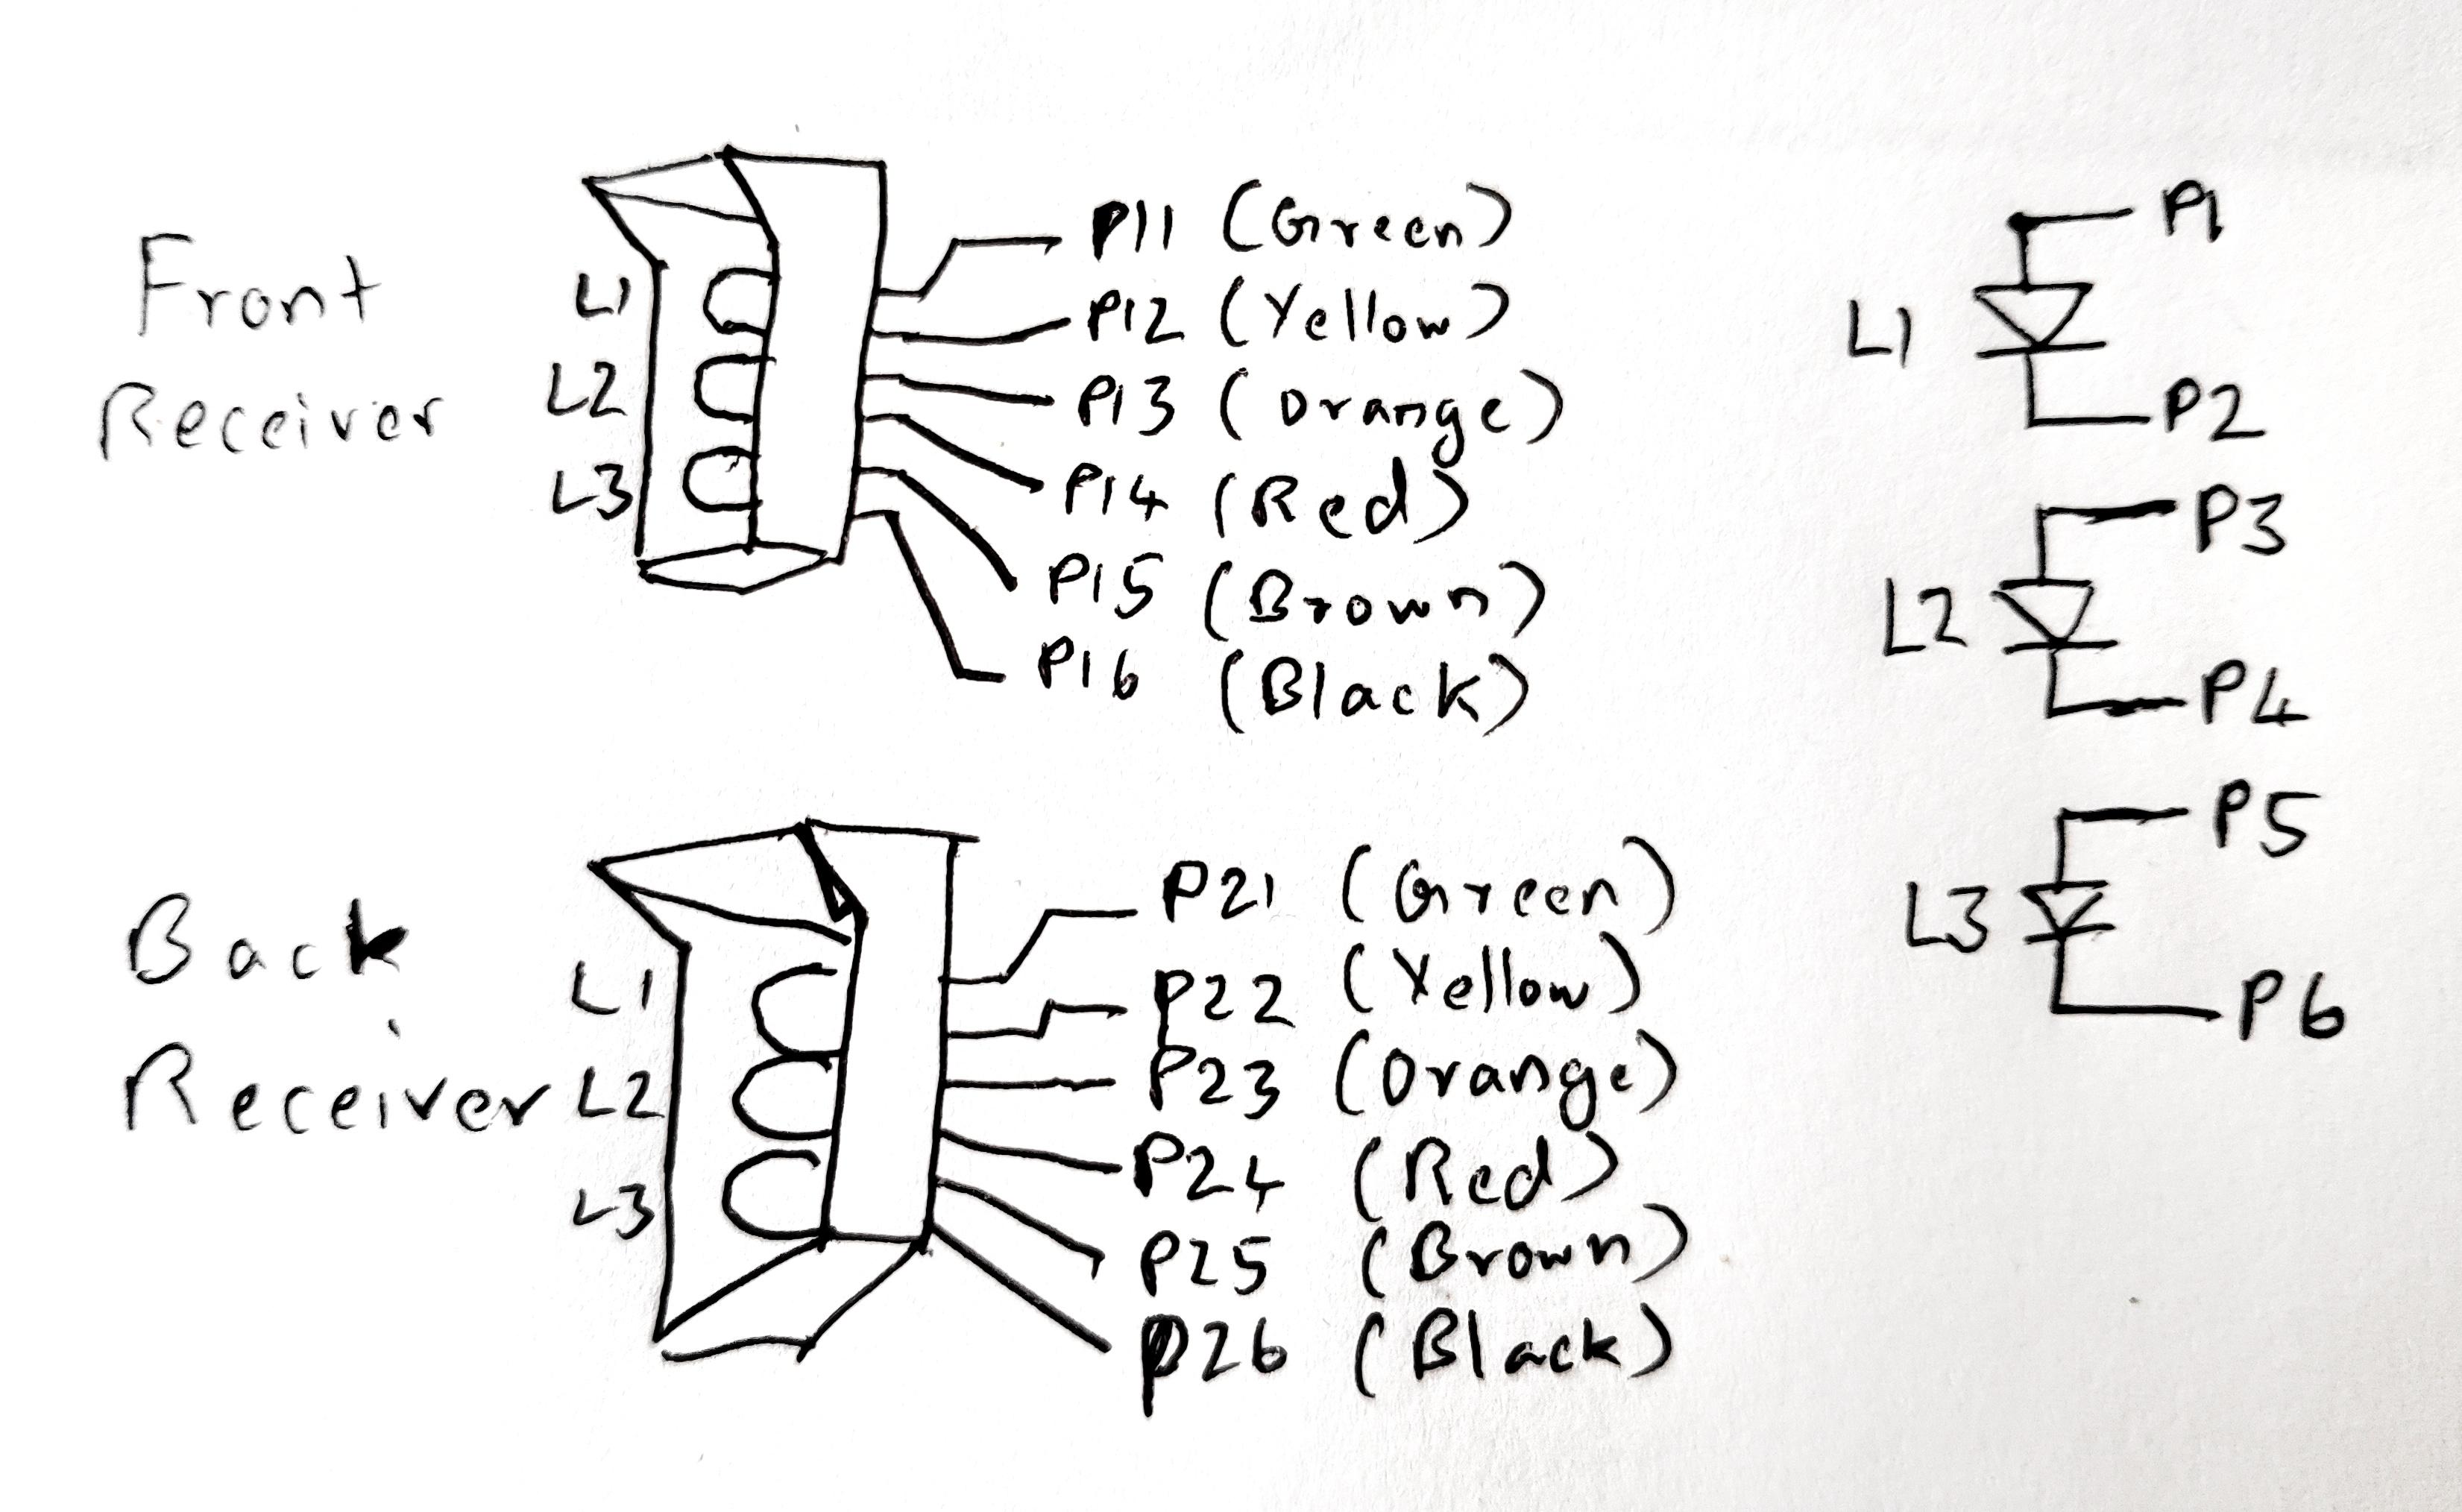 Front
Receiver
L1
L2
L3
P11 (Green)
P12 (Yellow)
P13 (Orange)
P14 (Red)
P15 (Brown)
P16 (Black)
Back
Receiver
L1
L2
L3
P21 (Green)
P22 (Yellow)
P23 (Orange)
P24 (Red)
P25 (Brown)
P26 (Black)
P1
L1
P2
P3
L2
P4
P5
L3
P6